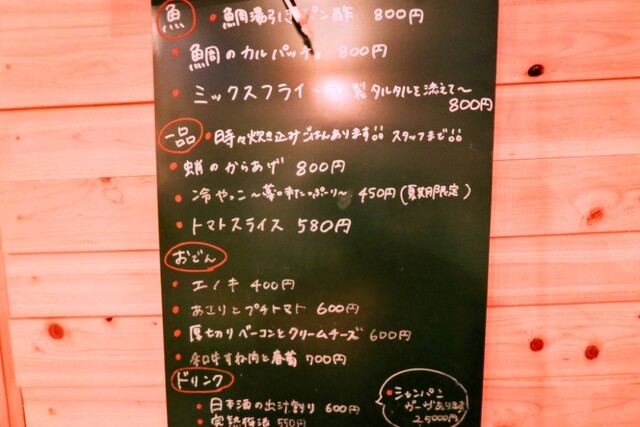 魚
・鯛湯引き ポン酢 800円
・鯛のカルパッチョ 800円
・ミックスフライ〜 製タルタルを添えて〜
800円
一品
・時々炊き込みごはんあります スタッフまで
・蛸のからあげ 800円
・冷やっこ〜薬味たっぷり〜 450円(夏期限定)
・トマトスライス 580円
おでん
・エノキ 400円
・あさりとプチトマト 600円
・厚切りベーコンとクリームチーズ 600円
・和牛すね肉と春菊 700円
ドリンク
・日本酒の出汁割り 600円
・完熟梅酒 550円
・シャンパン
ヴーヴあります
25000円